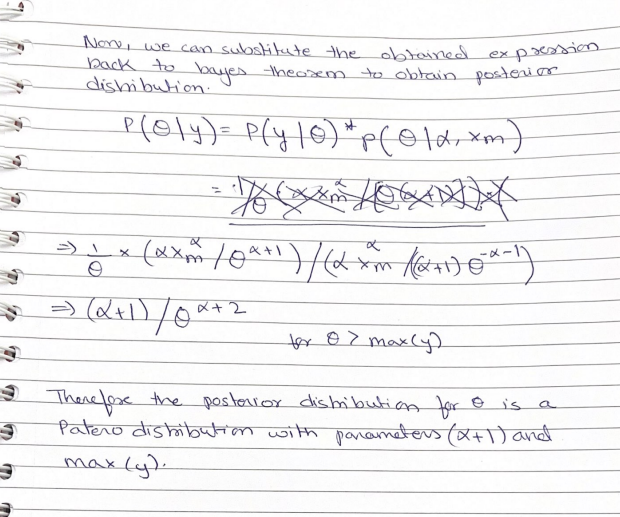 Now, we can substitute the obtained expression
back to bayes theorem to obtain posterior
distribution.
P(θ|y) = P(y|θ) * p(θ|α, xm)
⇒ 1/θ × (α xm^α / θ^α+1) / (α xm^α / (α+1) θ^-α-1)
⇒ (α+1) / θ^α+2
for θ > max(y)
Therefore the posterior distribution for θ is a
Patero distribution with parameters (α+1) and
max(y).